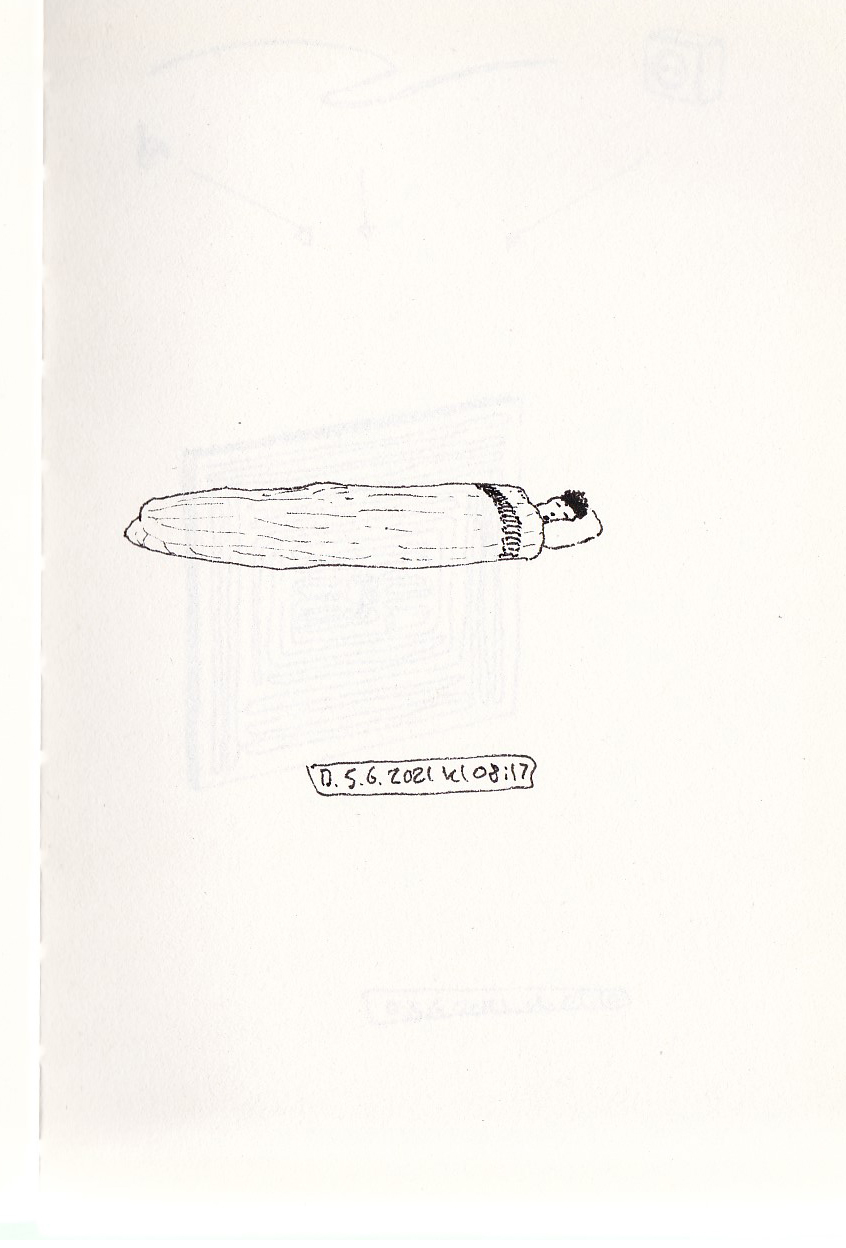 D. 5.6. 2021 kl 08:17